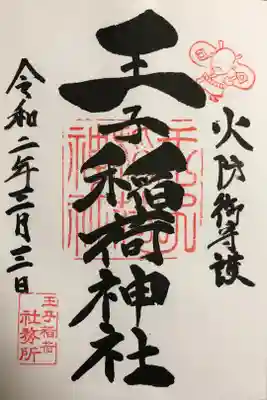 火防御守護
王子稲荷神社
令和二年二月三日
王子稲荷
社務所